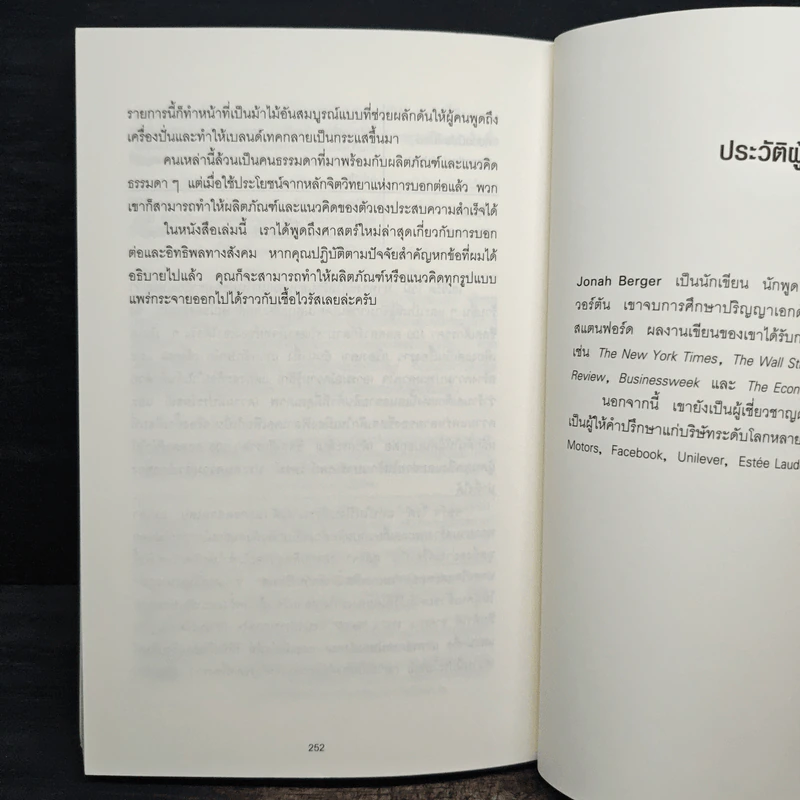 รายการนี้ก็ทำหน้าที่เป็นม้าไม้อันสมบูรณ์แบบที่ช่วยผลักดันให้ผู้คนพูดถึง
เครื่องปั่นและทำให้เบลนด์เทคกลายเป็นกระแสขึ้นมา
คนเหล่านี้ล้วนเป็นคนธรรมดาที่มาพร้อมกับผลิตภัณฑ์และแนวคิด
ธรรมดา ๆ แต่เมื่อใช้ประโยชน์จากหลักจิตวิทยาแห่งการบอกต่อแล้ว พวก
เขาก็สามารถทำให้ผลิตภัณฑ์และแนวคิดของตัวเองประสบความสำเร็จได้
ในหนังสือเล่มนี้ เราได้พูดถึงศาสตร์ใหม่ล่าสุดเกี่ยวกับการบอก
ต่อและอิทธิพลทางสังคม หากคุณปฏิบัติตามปัจจัยสำคัญหกข้อที่ผมได้
อธิบายไปแล้ว คุณก็จะสามารถทำให้ผลิตภัณฑ์หรือแนวคิดทุกรูปแบบ
แพร่กระจายออกไปได้ราวกับเชื้อไวรัสเลยล่ะครับ
252
ประวัติผู้
Jonah Berger เป็นนักเขียน นักพูด
วอร์ตัน เขาจบการศึกษาปริญญาเอกด
สแตนฟอร์ด ผลงานเขียนของเขาได้รับก
เช่น The New York Times, The Wall St
Review, Businessweek และ The Econ
นอกจากนี้ เขายังเป็นผู้เชี่ยวชาญ
เป็นผู้ให้คำปรึกษาแก่บริษัทระดับโลกหลาย
Motors, Facebook, Unilever, Estée Laud